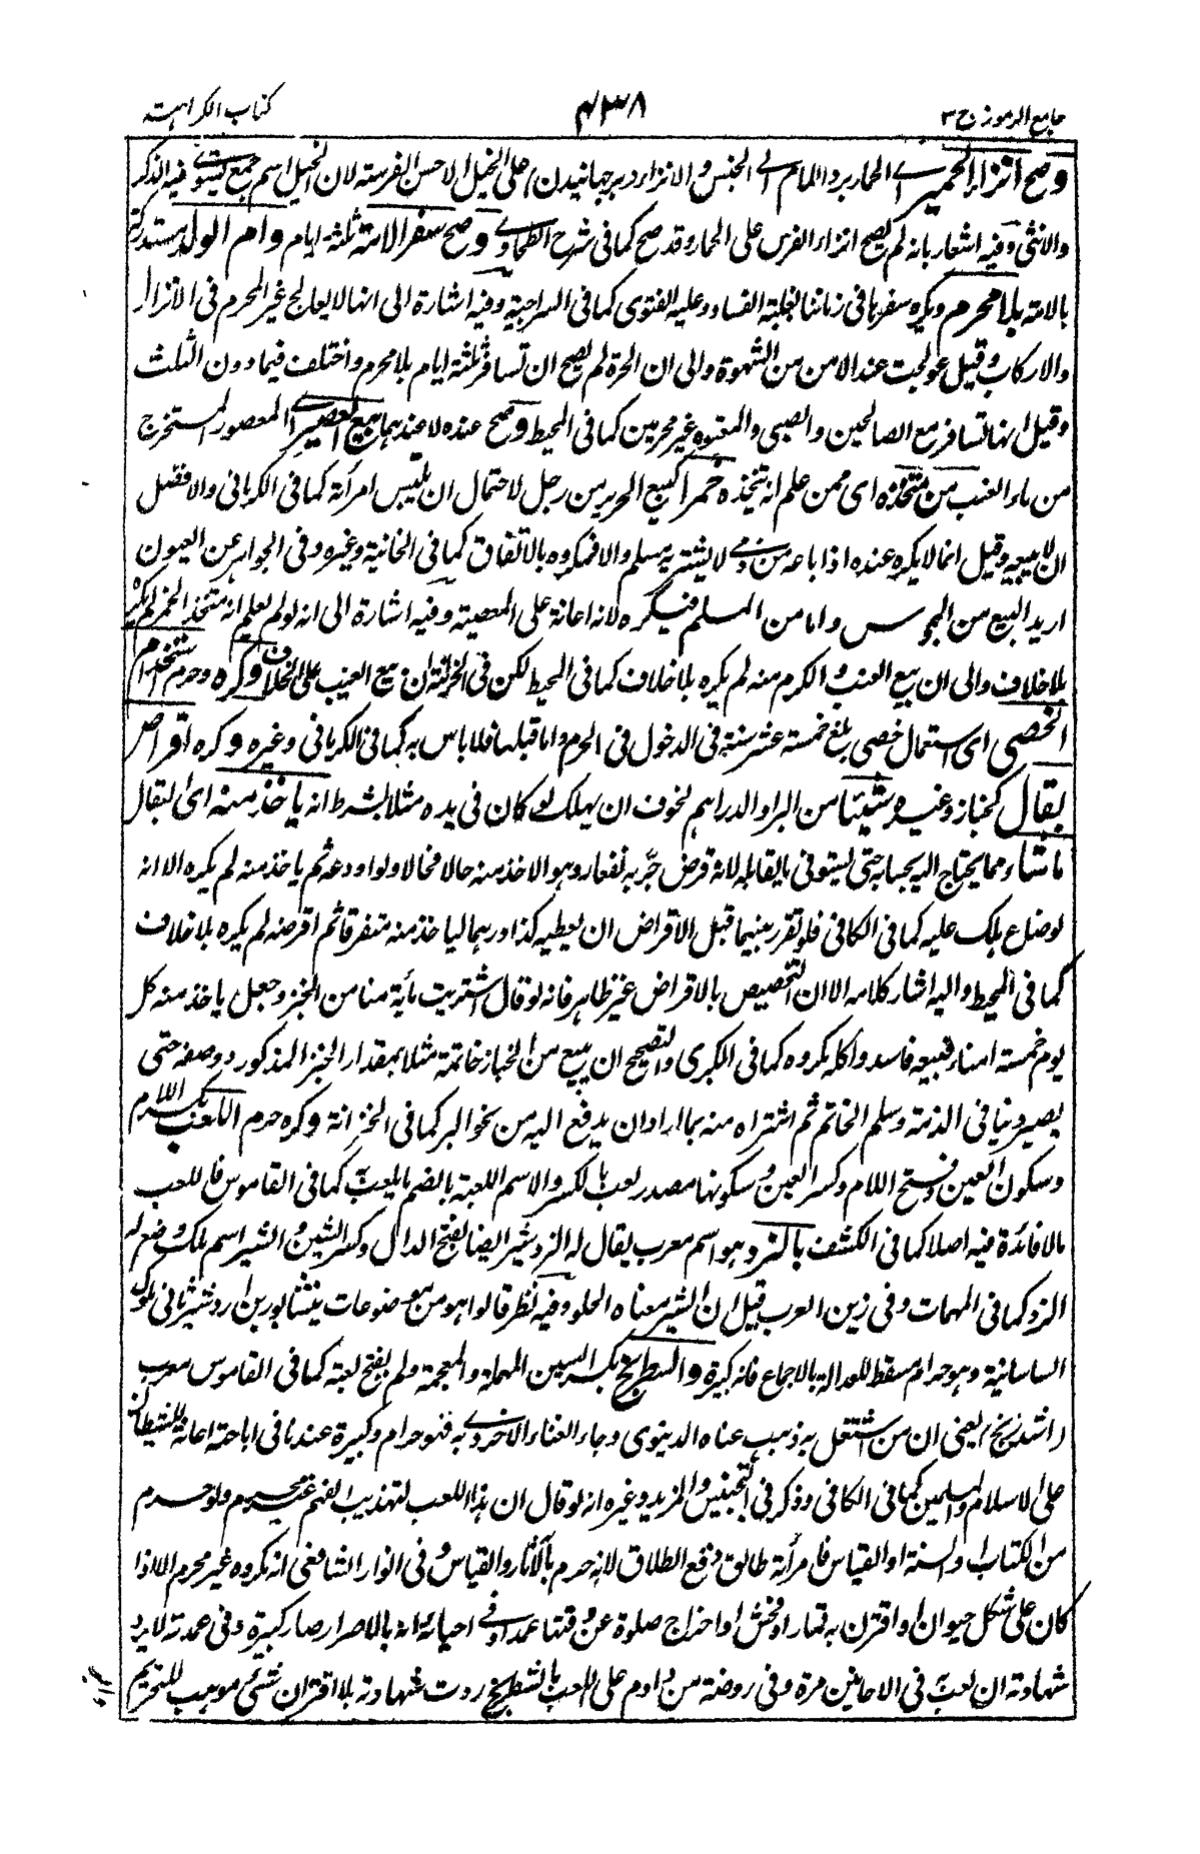 جامع الرموز ج ٣ ٤٣٨ كتاب الكراهية
وصح انزاء الحمير اى الحمار برد اللام الى الجنس والانزاء در برجهانيدن على الخيل الاحسن الفرسة لان الخيل اسم جمع يستوى فيه الذكر
والانثى وفيه اشعار بانه لم يصح انزاء الفرس على الحمار وقد صح كما فى شرح الطحاوى وصح سفر الامة ثلثة ايام وام الولد مستدركة
بالامة بلا محرم ويكره سفرها فى زماننا لغلبة الفساد وعليه الفتوى كما فى السراجية وفيه اشارة الى انها لا يعالج غير المحرم فى الانزال
والاركاب وقيل عولجت عند الامن من الشهوة والى ان الحرة لم يصح ان تسافر ثلثة ايام بلا محرم واختلف فيما دون الثلث
وقيل انها تسافر مع الصالحين والصبى والمعتوه غير محرمين كما فى المحيط وصح عنده لا عندهما بيع العصير اى المعصور المستخرج
من ماء العنب من متخذه اى ممن علم انه يتخذه خمرا كبيع الحرير من رجل لاحتمال ان يلبس امرأته كما فى الكرمانى والافضل
ان لا يبيعه وقيل انما لا يكره عنده اذا باعه من ذمى لا يشتريه مسلم والا فمكروه بالاتفاق كما فى الخانية وغيره وفى الجواهر عن العيون
اريد البيع من المجوس واما من المسلم فيكره لانه اعانة على المعصية وفيه اشارة الى انه لو لم يعلم انه متخذ الخمر لم يكره
بلا خلاف والى ان بيع العنب والكرم منه لم يكره بلا خلاف كما فى المحيط لكن فى الخزانة ان بيع العنب على الخلاف وكره وحرم استخدام
الخصى اى استعمال خصى بلغ خمسة عشر سنة فى الدخول فى الحرم واما قبلها فلا باس به كما فى الكرمانى وغيره وكره اقراض
بقال كخباز وغيره شيئا من البر او الدراهم لخوف ان يهلك لو كان فى يده مثلا بشرط انه ياخذ منه اى البقال
ما شاء مما يحتاج اليه بحسابه حتى يستوفى ما يقابله لانه قرض جر به نفعا وهو الاخذ منه حالا فحالا ولو اودعه ثم ياخذ منه لم يكره الا انه
لو ضاع يهلك عليه كما فى الكافى فلو تقرر بينهما قبل الاقراض ان يعطيه كذا درهما لياخذ منه متفرقا ثم اقرضه لم يكره بلا خلاف
كما فى المحيط واليه اشار كلامه الا ان التخصيص بالاقراض غير ظاهر فانه لو قال اشتريت مأية منا من الخبز وجعل ياخذ منه كل
يوم خمسة امناء فبيعه فاسد واكله مكروه كما فى الكبرى والصحيح ان يبيع من الخباز خاتمة مثلا بمقدار الخبز المذكور ووصفه حتى
يصير دينا فى الذمة وسلم الخاتم ثم اشتراه منه بما اراد ان يدفع اليه من نحو البر كما فى الخزانة وكره حرم اللعب بكسر اللام
وسكون العين وفتح اللام وكسر العين وسكونها مصدر لعب بالكسر والاسم اللعبة بالضم ما يلعب كما فى القاموس فاللعب
ما لا فائدة فيه اصلا كما فى الكشف بالنرد وهو اسم معرب يقال له النردشير ايضا بفتح الدال وكسر الشين والشير اسم ملك وضع له
النرد كما فى المهمات وفى زين العرب قيل ان الشير معناه الحلو وفيه نظر قالوا هو من موضوعات نيشابور بن اردشير ثانى ملوك
الساسانية وهو حرام مسقط للعدالة بالاجماع فانه كبيرة والشطرنج بكسر السين المهملة والمعجمة ولم يفتح لغة كما فى القاموس معرب
يعنى ان من اشتغل به ذهب عناه الدنيوى وجاء العناء الاخروى به فهو حرام وكبيرة عندنا فى اباحته اعانة الشيطان
على الاسلام والمسلمين كما فى الكافى وذكر فى التجنيس والمزيد وغيره انه لو قال ان هذا اللعب لتهذيب الفهم غير محرم ولو حرم
من الكتاب او السنة او القياس فامرأته طالق وقع الطلاق لانه حرم بالآثار والقياس وفى انوار الشافعى انه مكروه غير محرم الا اذا
كان على شكل حيوان او اقترن به قمار او فحش او اخراج صلوة عن وقتها عمدا وفى احيائه انه بالاصرار صار كبيرة وفى عمدته لا يرد
شهادته ان لعب فى الاحايين مرة وفى روضة من داوم على اللعب بالشطرنج ردت شهادته بلا اقتران شئ موجب للتحريم